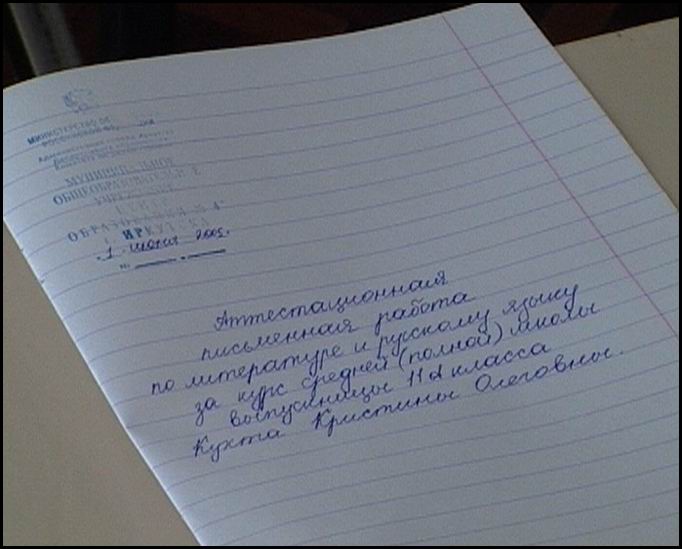 МИНИСТЕРСТВО ОБ
РОССИЙСКОЙ ФЕ
МУНИЦИПАЛЬНОЕ
ОБЩЕОБРАЗОВАТЕЛЬНОЕ
УЧРЕЖДЕНИЕ
ОБРАЗОВАНИЯ № 4
г. ИРКУТСКА
1 июня 2005г.
№
Аттестационная
письменная работа
по литературе и русскому языку
за курс средней (полной) школы
выпускницы 11 d класса
Кухта Кристины Олеговны.